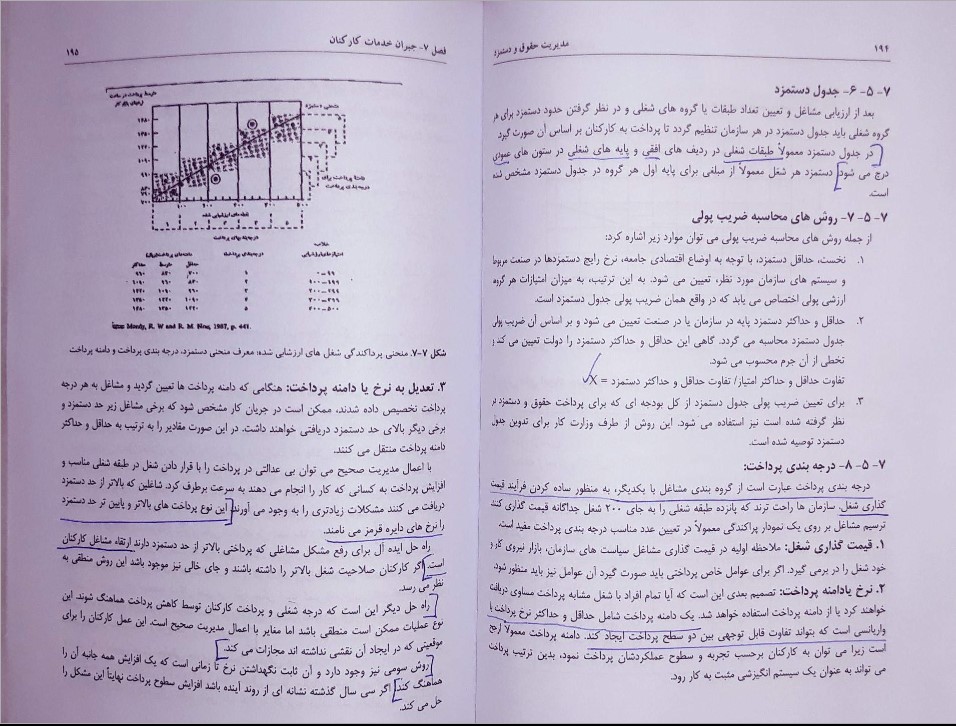 ۱۹۴
مدیریت حقوق و دستمزد
۷- ۵- ۶- جدول دستمزد
بعد از ارزیابی مشاغل و تعیین تعداد طبقات یا گروه های شغلی و در نظر گرفتن حدود دستمزد برای هر
گروه شغلی باید جدول دستمزد در هر سازمان تنظیم گردد تا پرداخت به کارکنان بر اساس آن صورت گیرد.
در جدول دستمزد معمولاً طبقات شغلی در ردیف های افقی و پایه های شغلی در ستون های عمودی
درج می شود دستمزد هر شغل معمولاً از مبلغی برای پایه اول هر گروه در جدول دستمزد مشخص شده
است.
۷- ۵- ۷- روش های محاسبه ضریب پولی
از جمله روش های محاسبه ضریب پولی می توان موارد زیر اشاره کرد:
۱. نخست، حداقل دستمزد، با توجه به اوضاع اقتصادی جامعه، نرخ رایج دستمزدها در صنعت مربوط
و سیستم های سازمان مورد نظر، تعیین می شود. به این ترتیب، به میزان امتیازات هر گروه
ارزشی پولی اختصاص می یابد که در واقع همان ضریب پولی جدول دستمزد است.
۲. حداقل و حداکثر دستمزد پایه در سازمان یا در صنعت تعیین می شود و بر اساس آن ضریب پولی
جدول دستمزد محاسبه می گردد. گاهی این حداقل و حداکثر دستمزد را دولت تعیین می کند و
تخطی از آن جرم محسوب می شود.
تفاوت حداقل و حداکثر امتیاز/ تفاوت حداقل و حداکثر دستمزد = X
۳. برای تعیین ضریب پولی جدول دستمزد از کل بودجه ای که برای پرداخت حقوق و دستمزد در
نظر گرفته شده است نیز استفاده می شود. این روش از طرف وزارت کار برای تدوین جدول
دستمزد توصیه شده است.
۷- ۵- ۸- درجه بندی پرداخت:
درجه بندی پرداخت عبارت است از گروه بندی مشاغل با یکدیگر، به منظور ساده کردن فرآیند قیمت
گذاری شغل. سازمان ها راحت ترند که پانزده طبقه شغلی را به جای ۲۰۰ شغل جداگانه قیمت گذاری کنند
ترسیم مشاغل بر روی یک نمودار پراکندگی معمولاً در تعیین عدد مناسب درجه بندی پرداخت مفید است.
۱. قیمت گذاری شغل: ملاحظه اولیه در قیمت گذاری مشاغل سیاست های سازمان، بازار نیروی کار و
خود شغل را در برمی گیرد. اگر برای عوامل خاص پرداختی باید صورت گیرد آن عوامل نیز باید منظور شود.
۲. نرخ یادامنه پرداخت: تصمیم بعدی این است که آیا تمام افراد با شغل مشابه پرداخت مساوی دریافت
خواهند کرد یا از دامنه پرداخت استفاده خواهد شد. یک دامنه پرداخت شامل حداقل و حداکثر نرخ پرداخت با
واریانسی است که بتواند تفاوت قابل توجهی بین دو سطح پرداخت ایجاد کند. دامنه پرداخت معمولاً ارجح
است زیرا می توان به کارکنان برحسب تجربه و سطوح عملکردشان پرداخت نمود، بدین ترتیب پرداخت
می تواند به عنوان یک سیستم انگیزشی مثبت به کار رود.
فصل ۷- جبران خدمات کارکنان
۱۹۵
متوسط پرداخت در ساعت
منحنی دستمزد
دامنهٔ پرداخت برای
درجه بندی پرداخت
نقطه های ارزشیابی شده
درجه بندی پرداخت
۱ ۲ ۳ ۴ ۵
خلاصه
درجه‌بندی پرداخت
حداقل متوسط حداکثر
۰–۹۹ ۱
۱۰۰–۱۹۹ ۲
۲۰۰–۲۹۹ ۳
۳۰۰–۳۹۹ ۴
۴۰۰–۵۰۰ ۵
Mondy, R. W and R. M. Noe, 1987, p. 441.
شکل ۷-۷. منحنی پرداکندگی شغل های ارزشابی شده: معرف منحنی دستمزد، درجه بندی پرداخت و دامنه پرداخت
۳. تعدیل به نرخ یا دامنه پرداخت: هنگامی که دامنه پرداخت ها تعیین گردید و مشاغل به هر درجه
پرداخت تخصیص داده شدند، ممکن است در جریان کار مشخص شود که برخی مشاغل زیر حد دستمزد و
برخی دیگر بالای حد دستمزد دریافتی خواهند داشت. در این صورت مقادیر را به ترتیب به حداقل و حداکثر
دامنه پرداخت منتقل می کنند.
با اعمال مدیریت صحیح می توان بی عدالتی در پرداخت را با قرار دادن شغل در طبقه شغلی مناسب و
افزایش پرداخت به کسانی که کار را انجام می دهند به سرعت برطرف کرد. شاغلین که بالاتر از حد دستمزد
دریافت می کنند مشکلات زیادتری را به وجود می آورند این نوع پرداخت های بالاتر و پایین تر حد دستمزد
را نرخ های دایره قرمز می نامند.
راه حل ایده آل برای رفع مشکل مشاغلی که پرداختی بالاتر از حد دستمزد دارند ارتقاء مشاغل کارکنان
است. اگر کارکنان صلاحیت شغل بالاتر را داشته باشند و جای خالی نیز موجود باشد این روش منطقی به
نظر می رسد.
راه حل دیگر این است که درجه شغلی و پرداخت کارکنان توسط کاهش پرداخت هماهنگ شوند. این
نوع عملیات ممکن است منطقی باشد اما مغایر با اعمال مدیریت صحیح است. این عمل کارکنان را برای
موقعیتی که در ایجاد آن نقشی نداشته اند مجازات می کند.
روش سومی نیز وجود دارد و آن ثابت نگهداشتن نرخ تا زمانی است که یک افزایش همه جانبه آن را
هماهنگ کند. اگر سی سال گذشته نشانه ای از روند آینده باشد افزایش سطوح پرداخت نهایتاً این مشکل را
حل می کند.